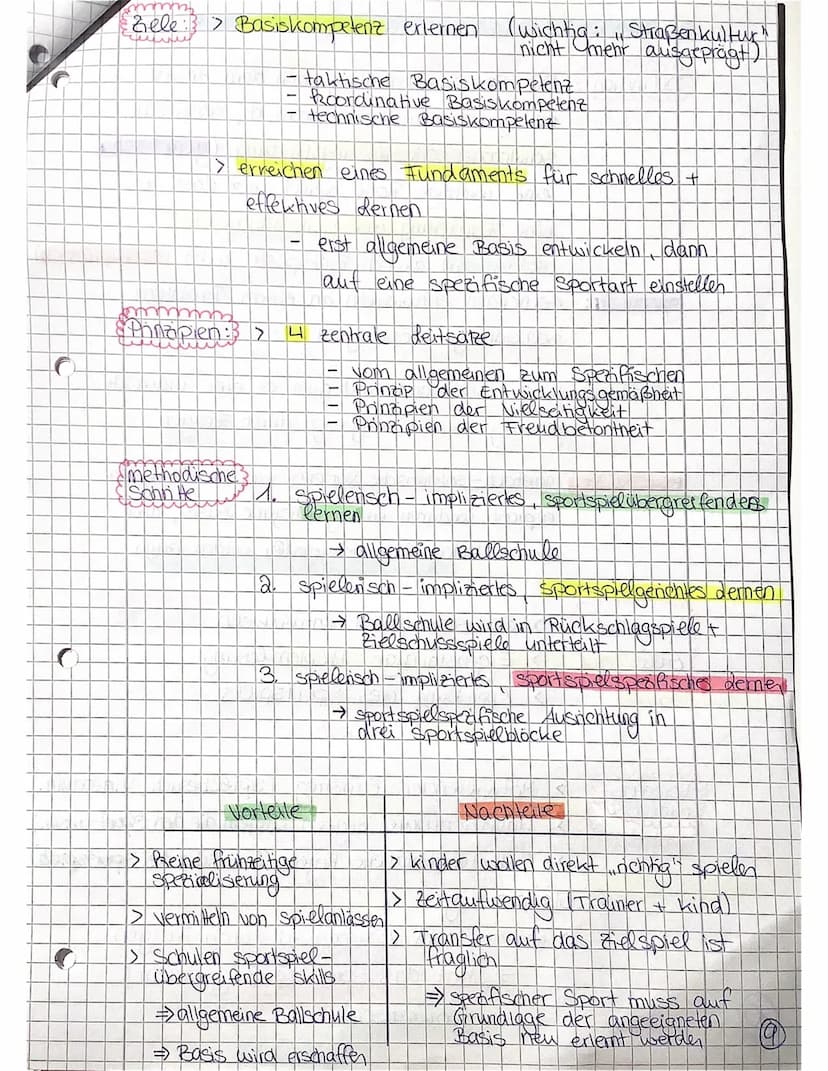 Ziele: > Basiskompetenz erlernen (wichtig: „Straßenkultur"
nicht mehr ausgeprägt)
- taktische Basiskompetenz
- koordinative Basiskompetenz
- technische Basiskompetenz
> erreichen eines Fundaments für schnelles +
effektives Lernen
- erst allgemeine Basis entwickeln, dann
auf eine spezifische Sportart einstellen
Prinzipien: > 4 zentrale Leitsätze
- vom allgemeinen zum Spezifischen
- Prinzip der Entwicklungsgemäßheit
- Prinzipien der Vielseitigkeit
- Prinzipien der Freudbetontheit
methodische
Schritte
1. spielerisch-impliziertes, sportspielübergreifendes
lernen
→ allgemeine Ballschule
2. spielerisch-impliziertes, sportspielgerichtes Lernen
→ Ballschule wird in Rückschlagspiele +
Zielschussspiele unterteilt
3. spielerisch-impliziertes, sportspielspezifisches Lernen
→ sportspielspezifische Ausrichtung in
drei Sportspielblöcke
Vorteile
> Keine frühzeitige
spezialiserung
> vermitteln von spielanlässen
> Schulen sportspiel-
übergreifende skills
⇒ allgemeine Ballschule
⇒ Basis wird erschaffen
Nachteile
> kinder wollen direkt „richtig" spielen
> Zeitaufwendig (Trainer + Kind)
> Transfer auf das Zielspiel ist
fraglich
⇒ spezifischer Sport muss auf
Grundlage der angeeigneten
Basis neu erlernt werden
9